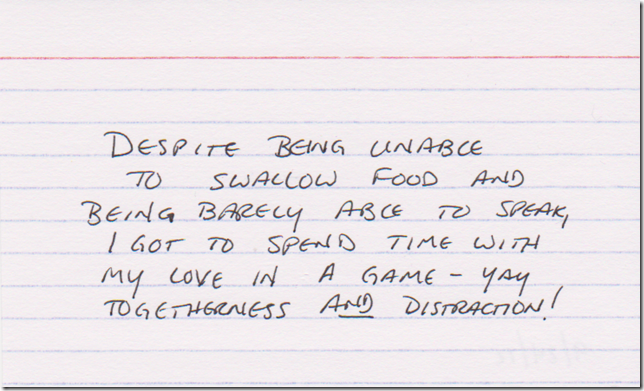 DESPITE BEING UNABLE
TO SWALLOW FOOD AND
BEING BARELY ABLE TO SPEAK,
I GOT TO SPEND TIME WITH
MY LOVE IN A GAME – YAY
TOGETHERNESS AND DISTRACTION!